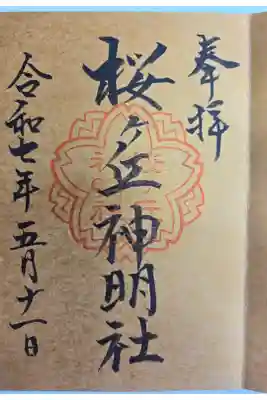 奉拝
桜ヶ丘神明社
令和七年五月十一日